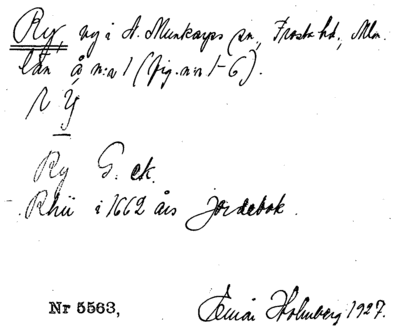 Ry, ny i S. Munkarps sn., Frosta hd., Mlm.
län å n:o 1 (fig. n:o 1-6).
r y
Ry G. ek.
Rhü i 1662 års jordebok.
Nr 5563, Einar Holmberg 1927.